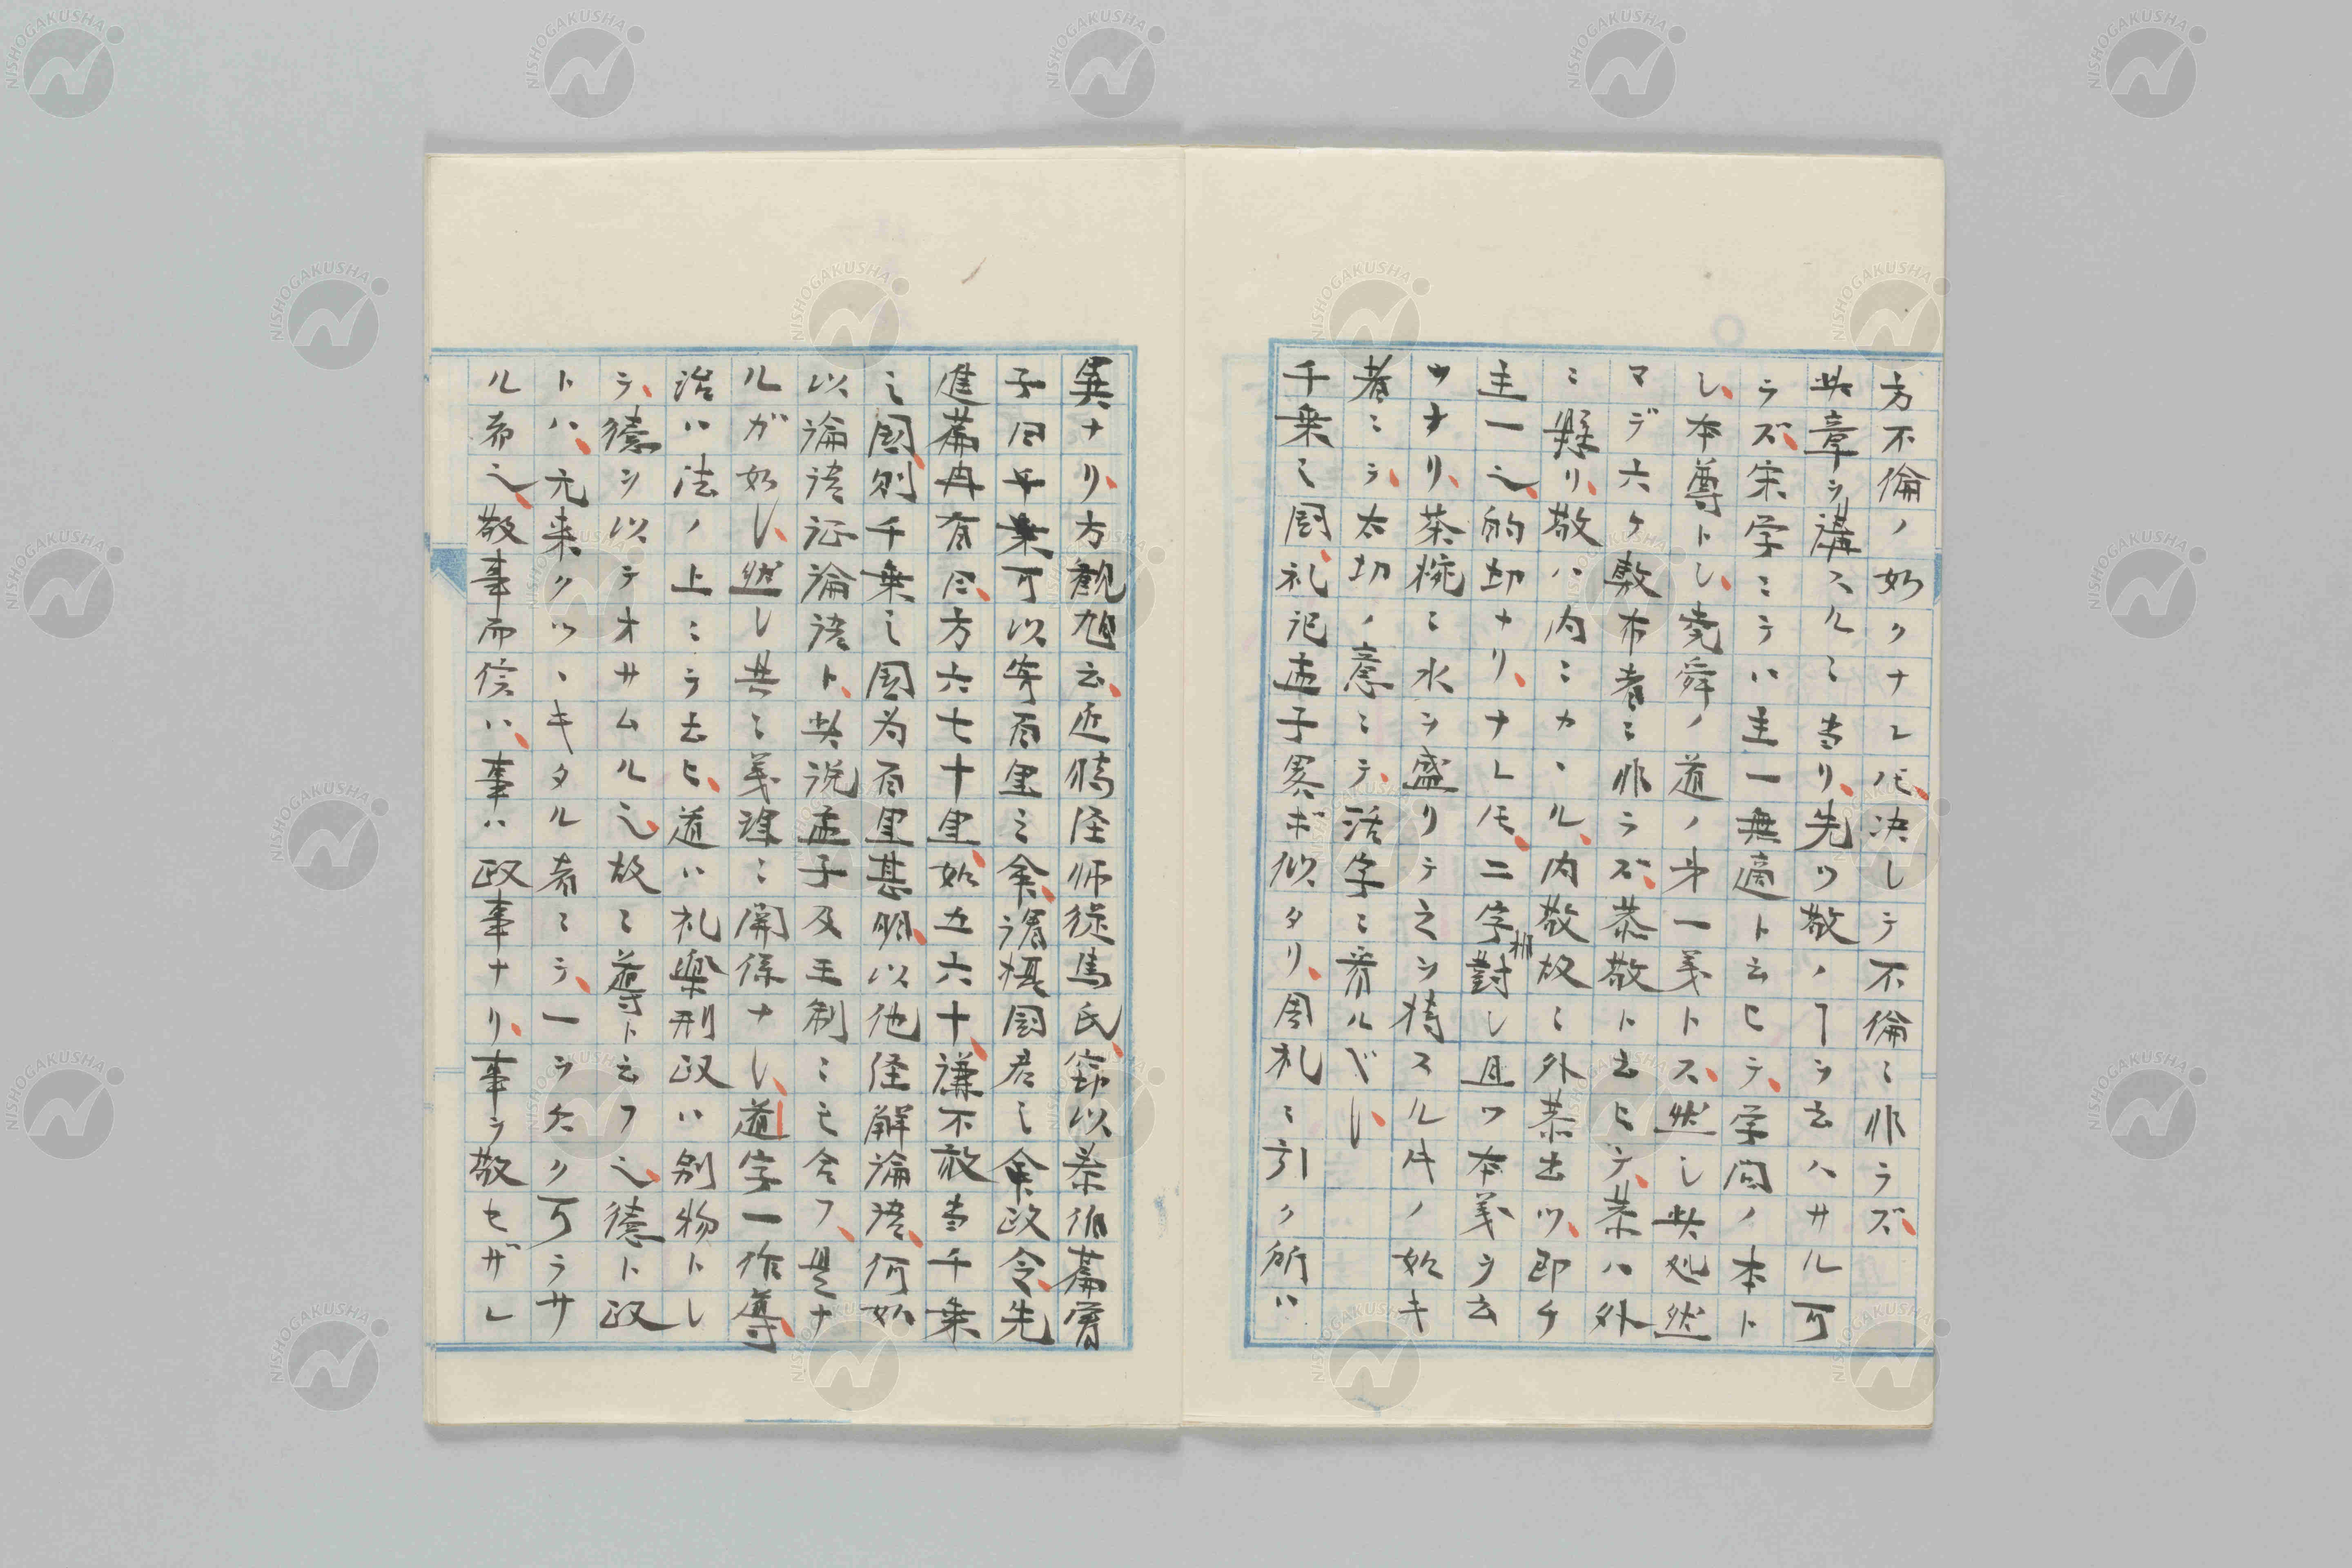 方不倫ノ如クナレ𪜈、決シテ不倫ニ非ラズ、
此章ヲ講スルニ当リ、先ツ敬ノヿヲ云ハサル可
ラズ、宋学ニテハ主一無適ト云ヒテ、学問ノ本ト
シ、本尊トシ、堯舜ノ道ノ第一義トス、然シ此処然
マデ六ケ敷布者ニ非ラズ、恭敬ト云ヒテ、恭ハ外
ニ懸リ、敬ハ内ニカヽル、内敬故ニ外恭出ツ、即チ
主一之、的切ナリ、ナレ𪜈、二字相對シ且ツ本義ヲ云
ウナリ、茶椀ニ水ヲ盛リテ之ヲ持スル𪜈ノ如キ
者ニテ、大切ノ意ニテ、活字ニ看ルベシ、
千乗之国、礼記孟子畧ボ似タリ、周礼ニ引ク所ハ
異ナリ、方観旭云、近儒経師徒馬氏、窃以泰伯篇曽
子曰千乗可以寄百里之命、謂摂国君之命政令、先
進篇冉有曰、方六七十里、如五六十、謙不敢当千乗
之国、則千乗之国為百里甚明、以他経解論語、何如
以論語証論語ト、此説孟子及王制ニモ合フ、是ナ
ルガ如シ、然シ共ニ義理ニ関係ナシ、道字一作導、
治ハ法ノ上ニテ云ヒ、道ハ礼楽刑政ハ別物トシ
テ、徳ヲ以テオサムル之、故ニ導ト云フ之、徳ト政
トハ、元来クツヽキタル者ニテ、一ヲ欠ク可ラサ
ル希之、敬事而信ハ、事ハ政事ナリ、事ヲ敬セザレ